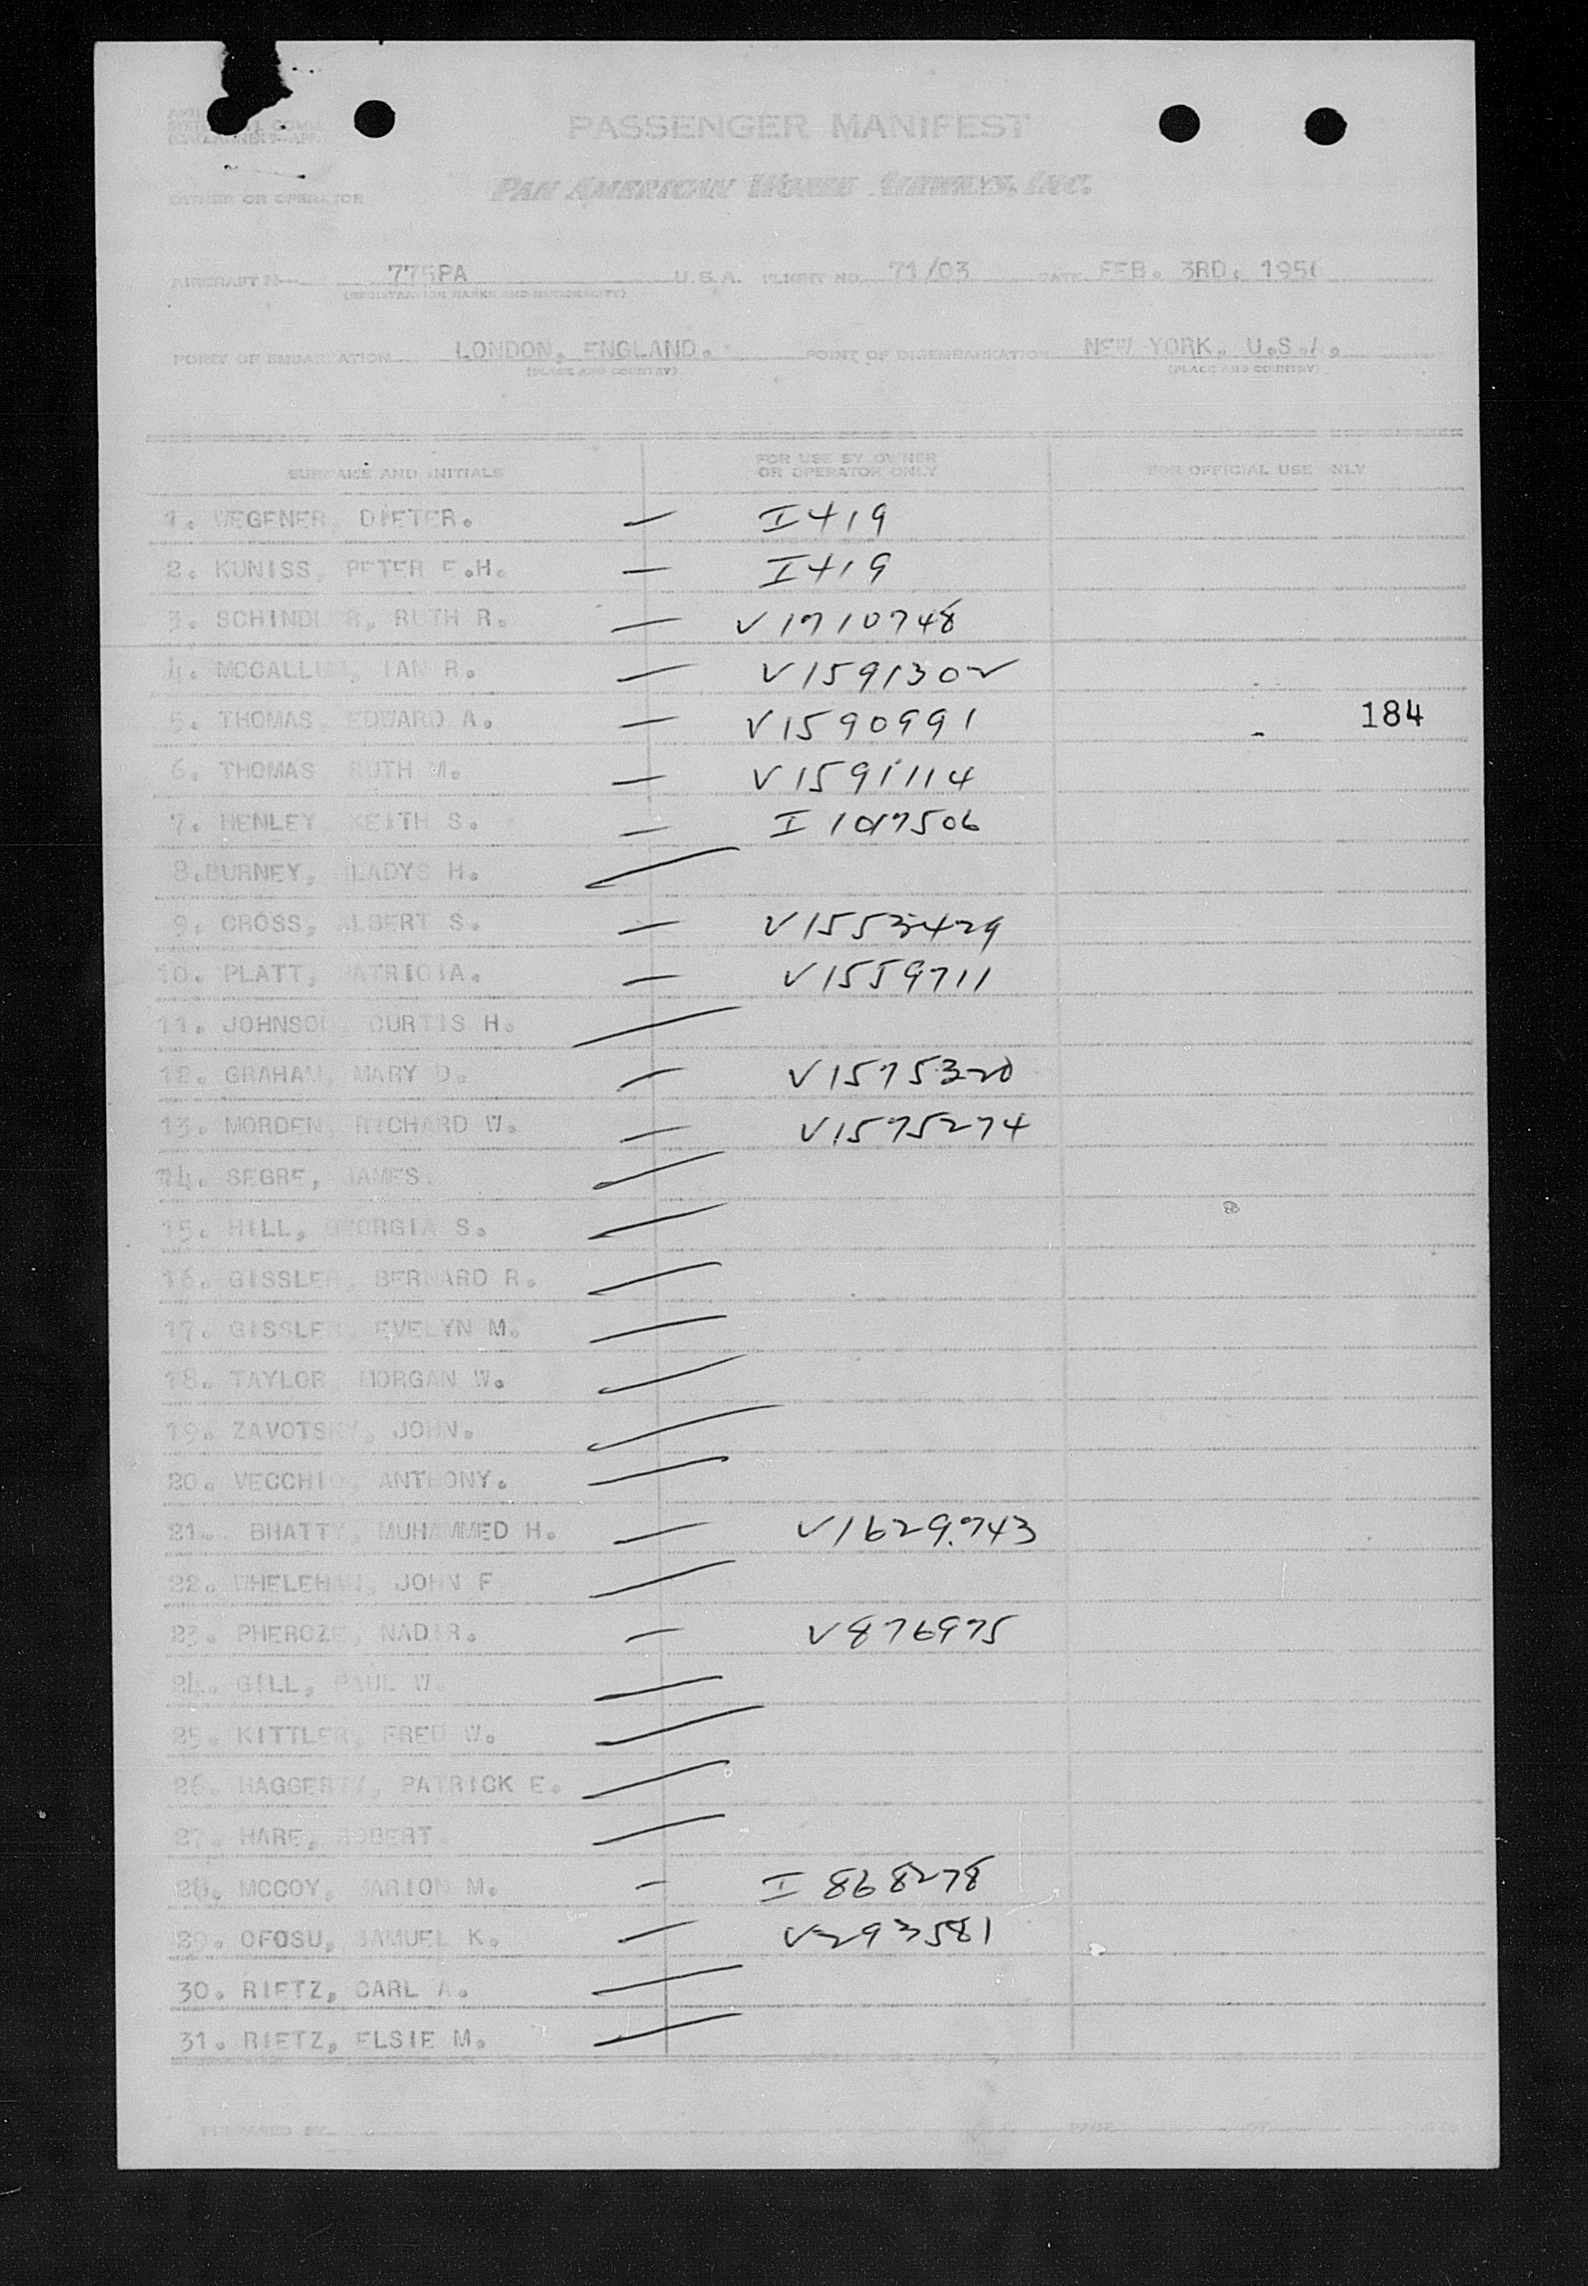 PASSENGER MANIFEST
PAN AMERICAN WORLD AIRWAYS, INC.
OWNER OR OPERATOR
AIRCRAFT N— 775PA U.S.A. FLIGHT NO. 71/03 DATE FEB. 3RD. 195
(REGISTRATION MARKS AND NATIONALITY)
POINT OF EMBARKATION LONDON, ENGLAND. POINT OF DISEMBARKATION NEW YORK, U.S.A.
(PLACE AND COUNTRY) (PLACE AND COUNTRY)
SURNAME AND INITIALS FOR USE BY OWNER OR OPERATOR ONLY FOR OFFICIAL USE ONLY
1. WEGENER, DIETER. — I419
2. KUNISS, PETER E.H. — I419
3. SCHINDLER, RUTH R. — V1710748
4. MCGALLUM, IAN R. — V1591302
5. THOMAS, EDWARD A. — V1590991 184
6. THOMAS, RUTH M. — V1591114
7. HENLEY, KEITH S. — I1017506
8.BURNEY, GLADYS H.
9. GROSS, ALBERT S. — V1553429
10. PLATT, PATRICIA. — V1559711
11. JOHNSON, CURTIS H.
12. GRAHAM, MARY D. — V1575320
13. MORDEN, RICHARD W. — V1575274
14. SEGRE, JAMES.
15. HILL, GEORGIA S.
16. GISSLER, BERNARD R.
17. GISSLER, EVELYN M.
18. TAYLOR, MORGAN W.
19. ZAVOTSKY, JOHN.
20. VECCHIO, ANTHONY.
21. BHATTY, MUHAMMED H. — V1629743
22. WHELEHAN, JOHN F.
23. PHEROZE, NADIR. — V876975
24. GILL, PAUL W.
25. KITTLER, FRED W.
26. HAGGERTY, PATRICK E.
27. HARE, ROBERT.
28. MCCOY, MARION M. — I 868278
29. OFOSU, SAMUEL K. — V293581
30. RIETZ, CARL A.
31. RIETZ, ELSIE M.
PREPARED BY PAGE OF